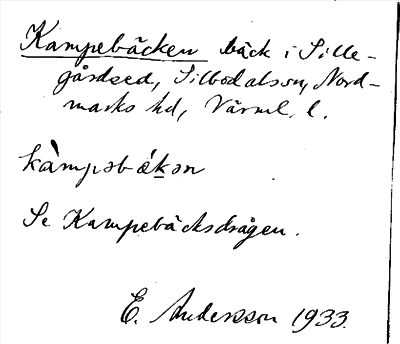 Kampebäcken bäck i Sille-
gårdsed, Silbodalssn, Nord-
marks hd, Värml. l.
kàmpəbǽkən
Se Kampebäcksdrågen.
E. Andersson 1933.